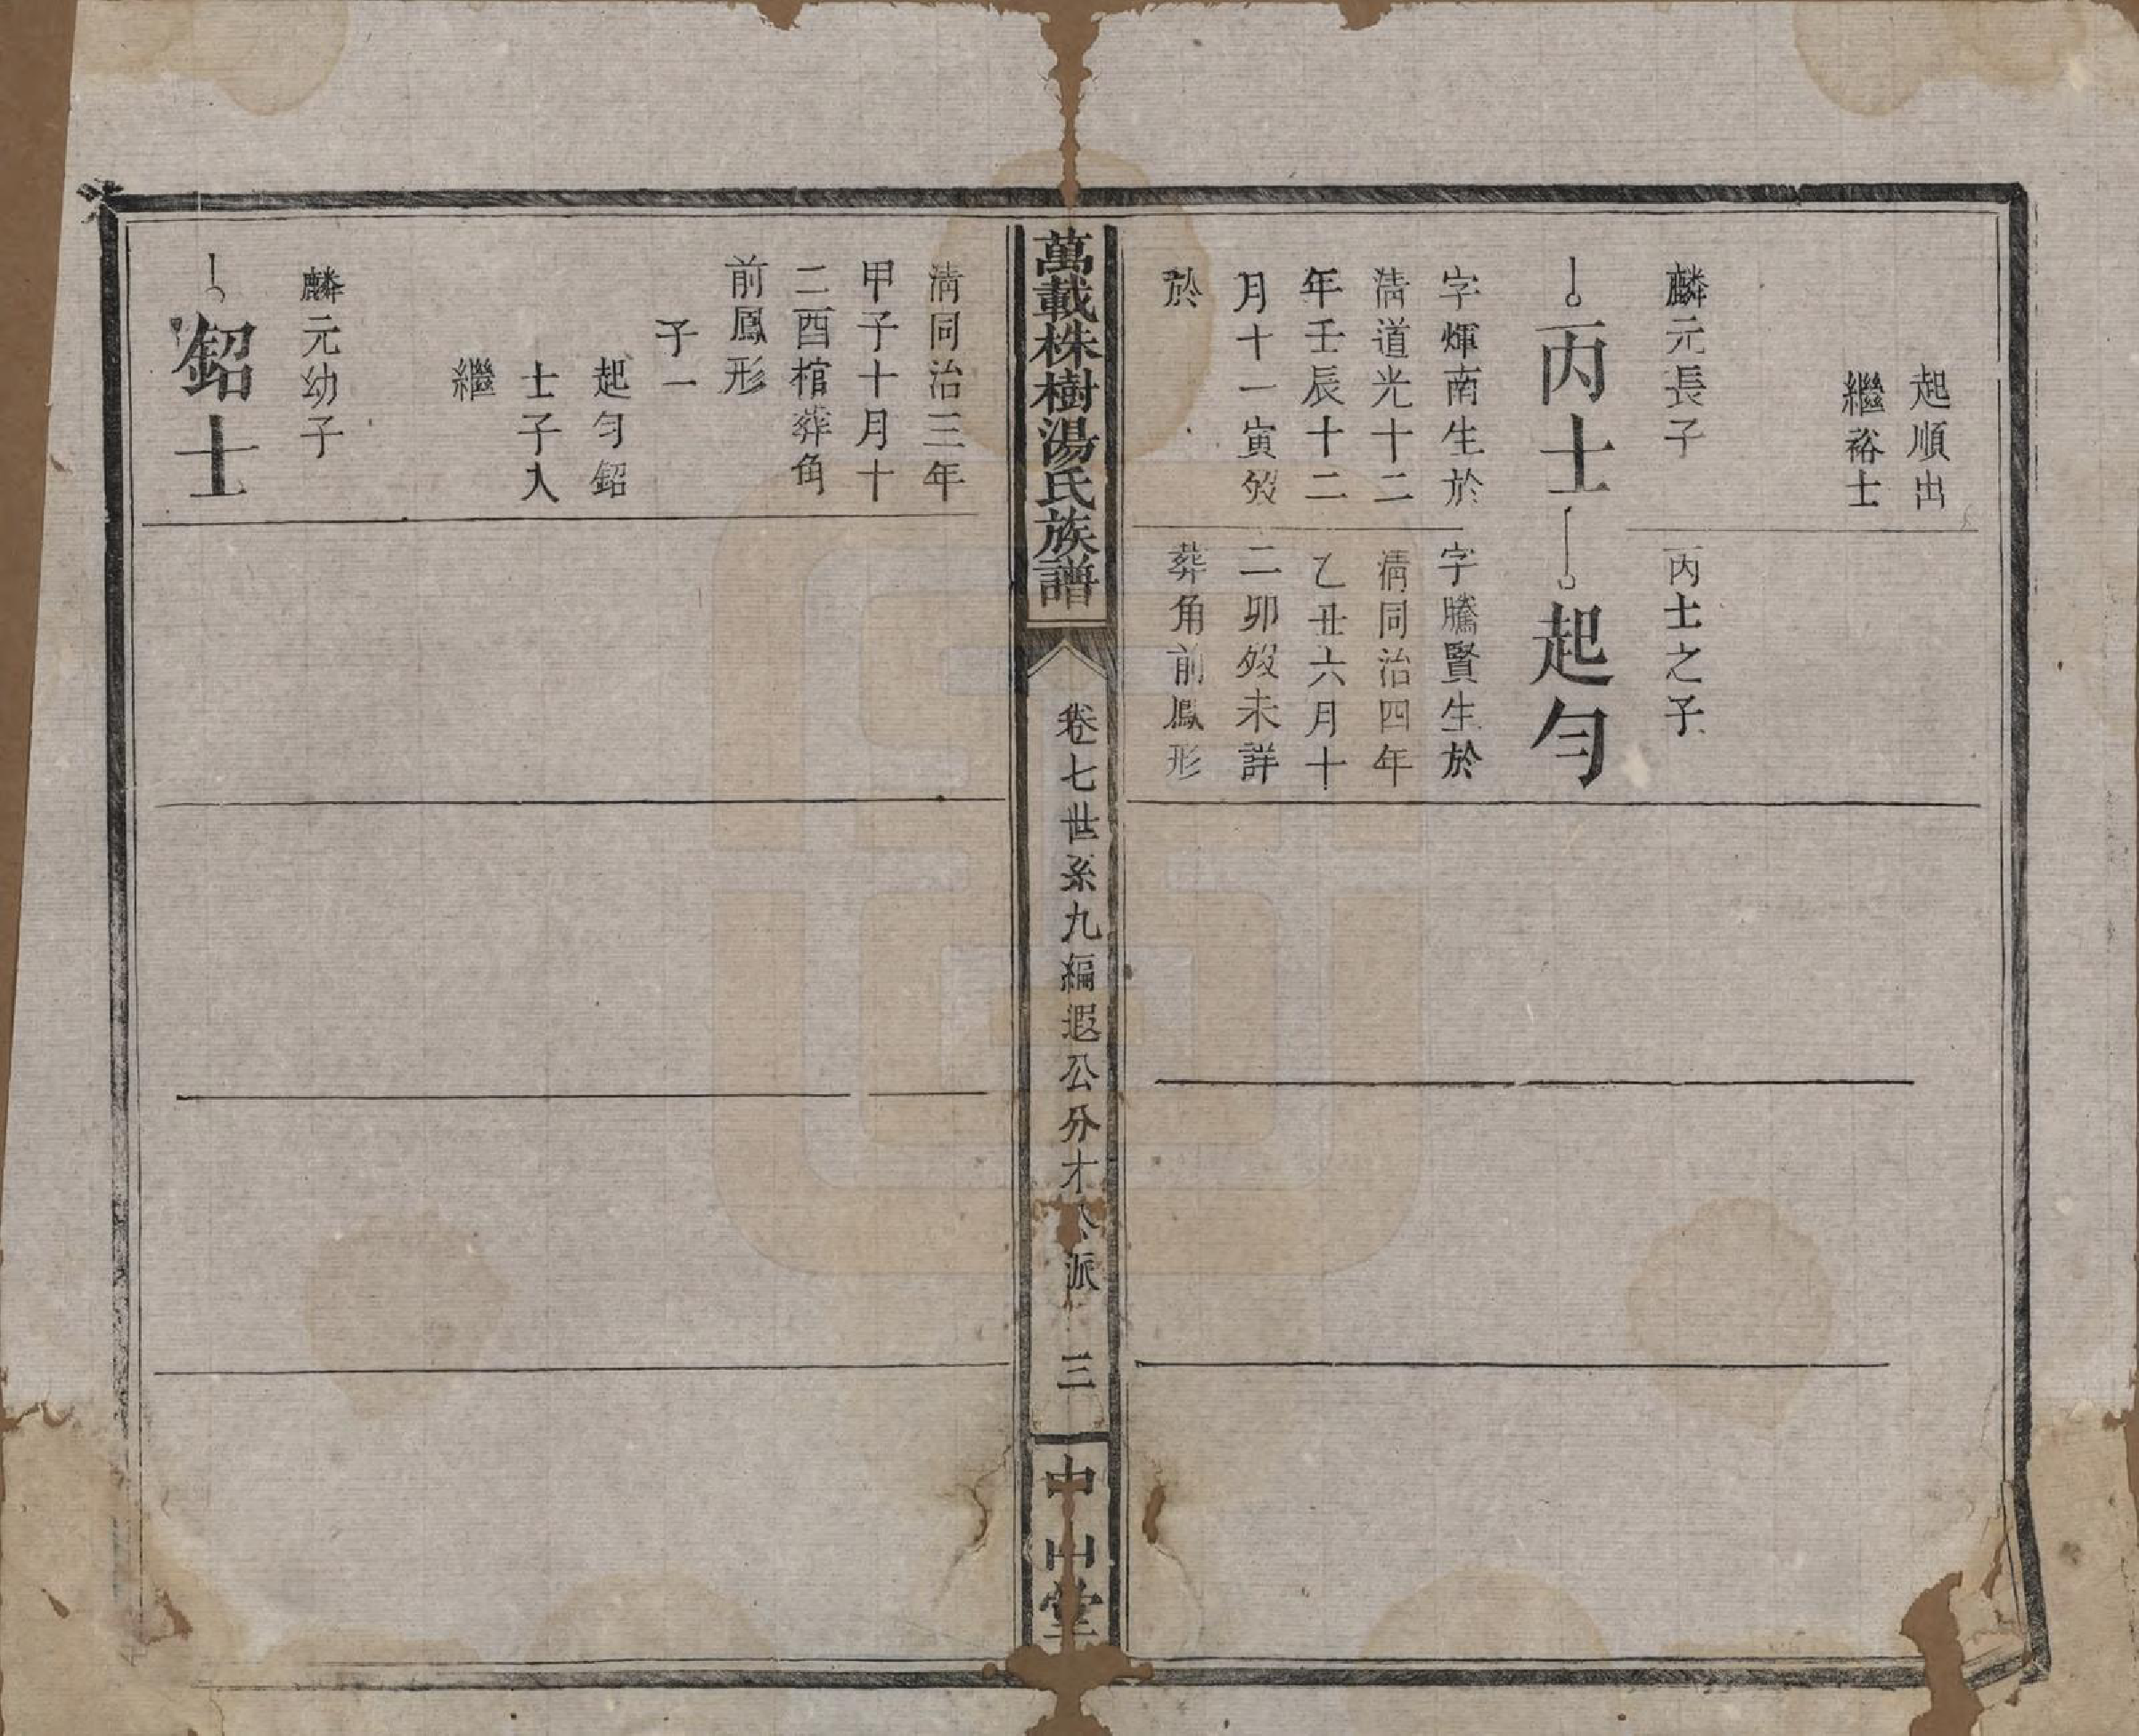 起順出
繼裕士
麟元長子
丙士
字煇南生於
清道光十二
年壬辰十二
月十一寅歿
於
丙士之子
起勻
字騰賢生於
清同治四年
乙丑六月十
二卯歿未詳
葬角前鳳形
萬載株樹湯氏族譜
卷七世系九編遐公分才公派
三
中山堂
清同治三年
甲子十月十
二酉棺葬角
前鳳形
子一
起勻鉊
士子入
繼
麟元幼子
鉊士